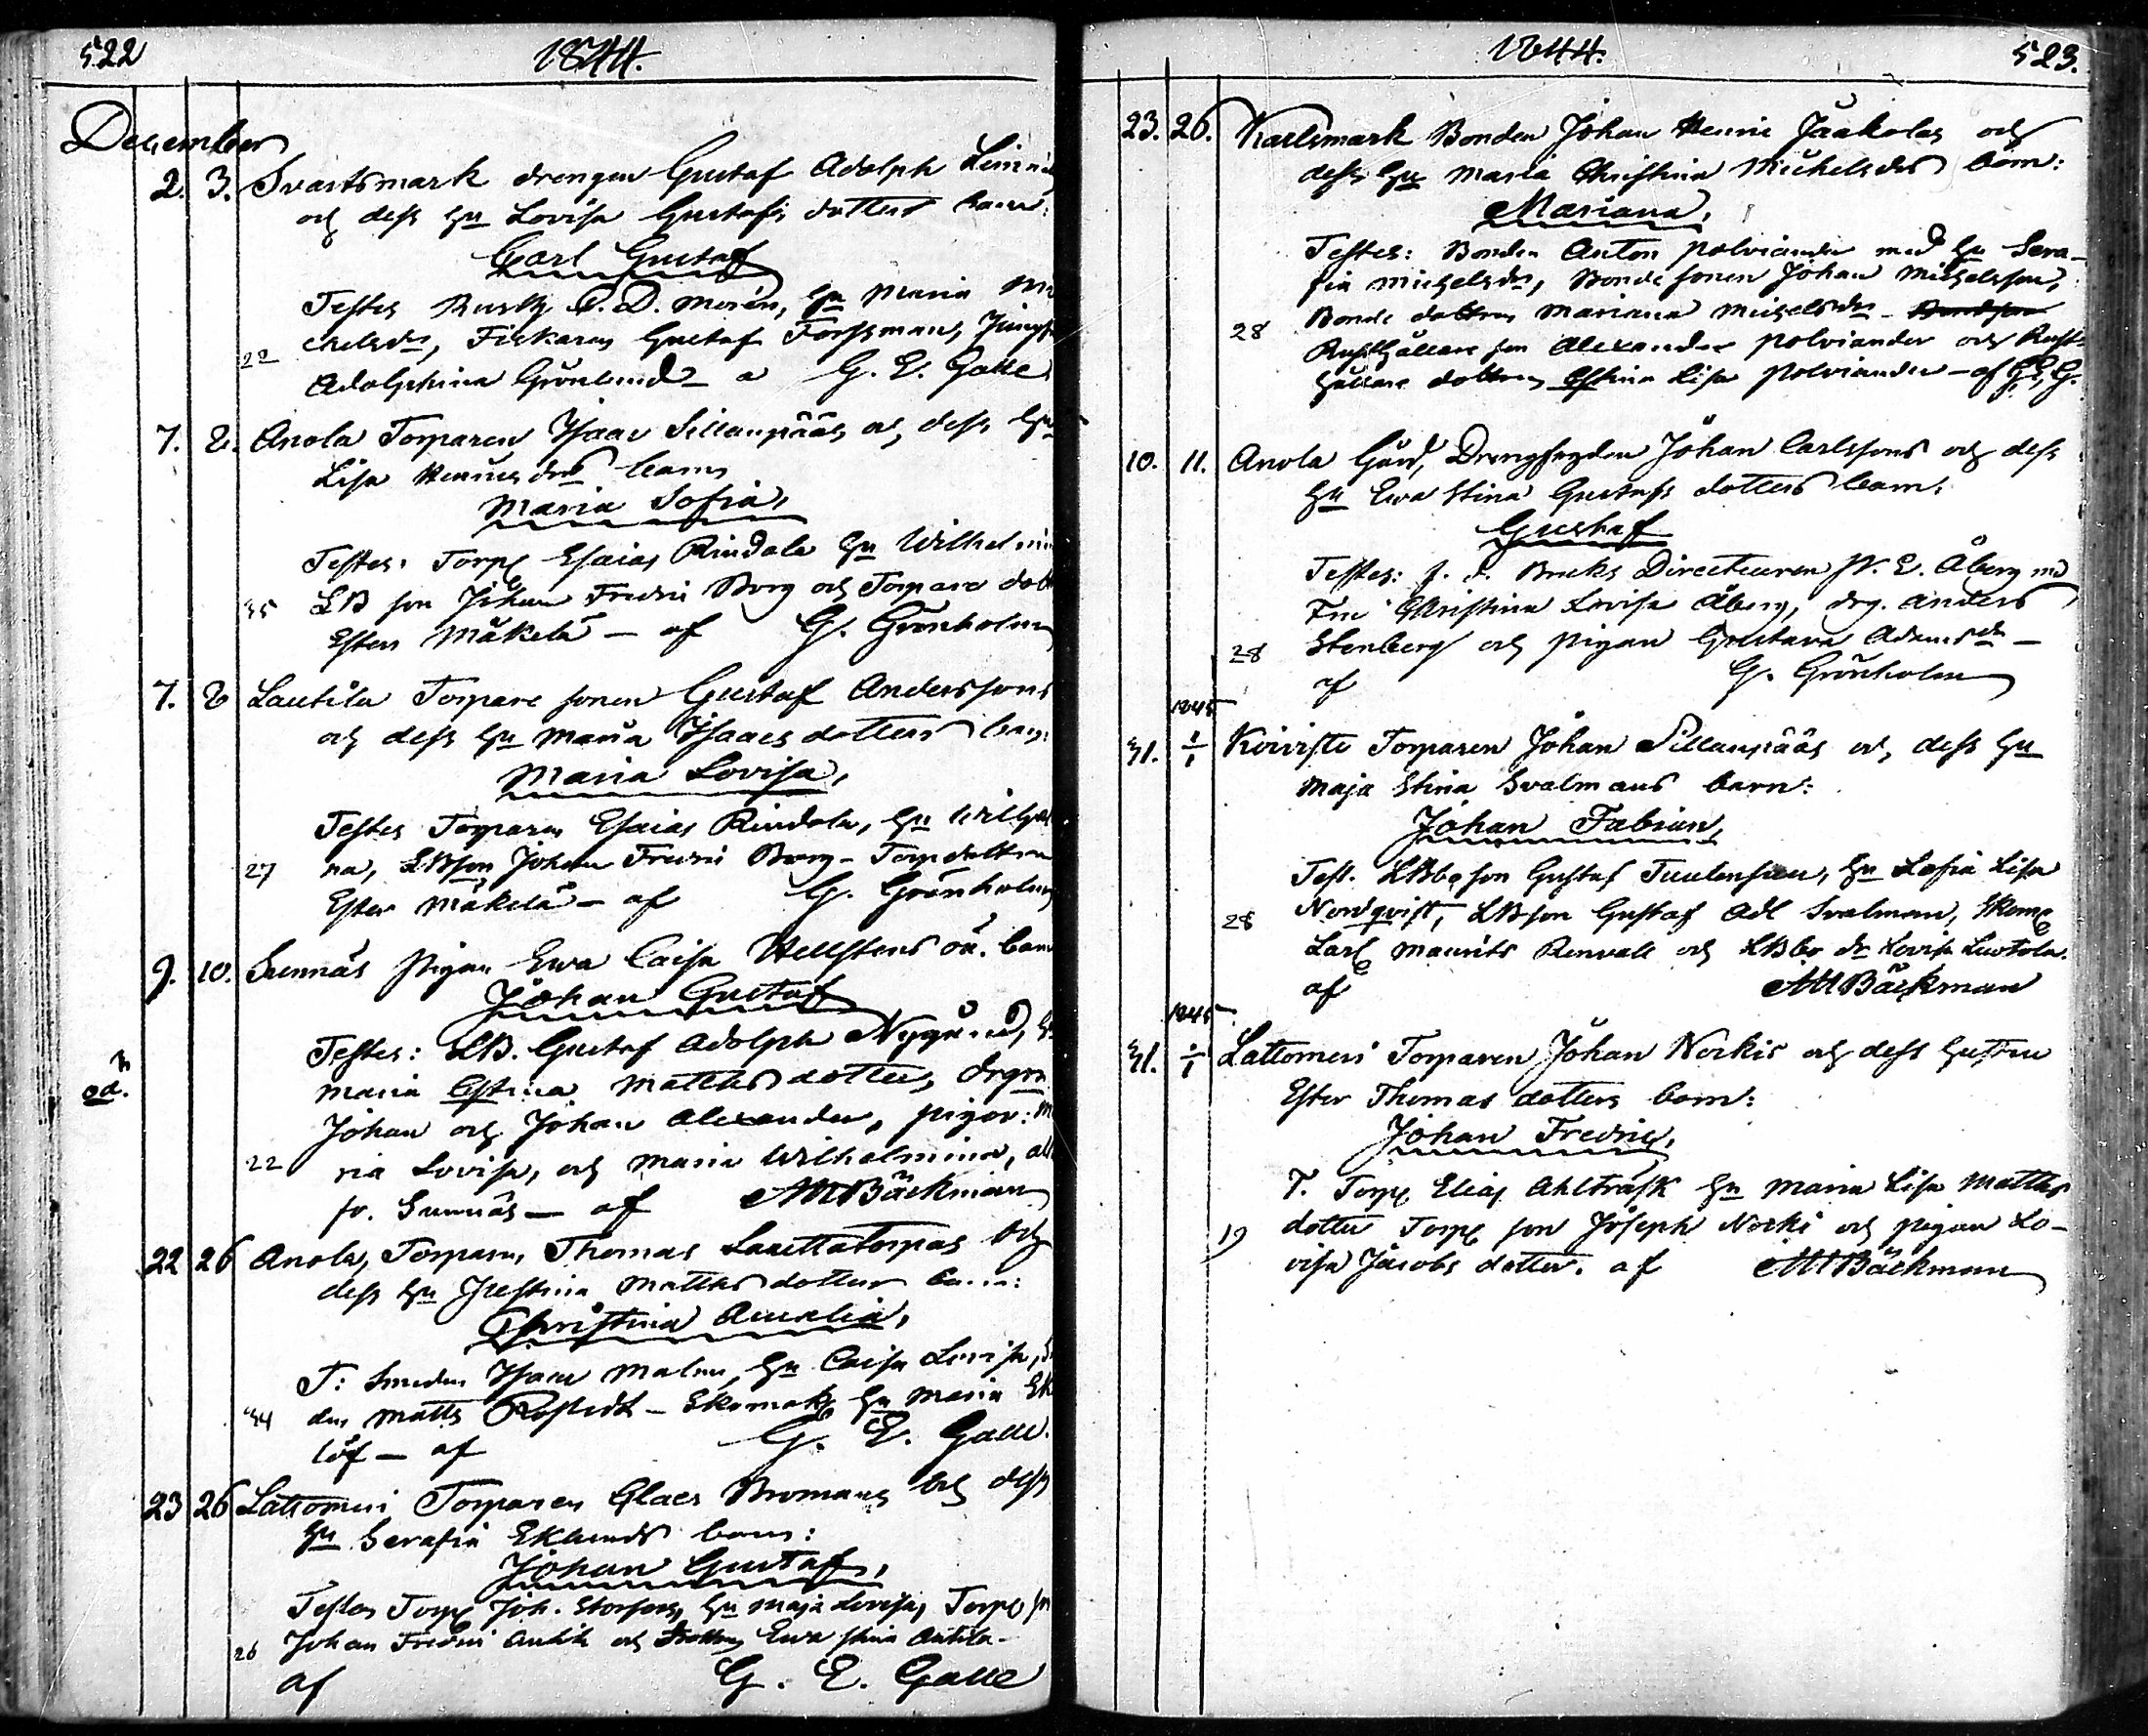 522
1844.
December
2. 3. Svartsmark drengen Gustaf Adolph
och dess Hu Lovisa Gustafs dotters barn:
Carl Gustaf
Testes Rusth C. D. Morén, Hu Maria Mi
chelsdr, Fiskaren Gustaf Forssman, Jungf
Adolphina Grönlund a G. E. Galle
7. 8. Anola Torparen Isaac Sillanpääs och dess Hu
Lisa Henricsdrs barn
Maria Sofia,
Testes: Torp Esaias Rindala Hu Wilhelmin
35 LB son Johan Fredric Borg och Torpare dott
Ester Mäkelä - af G. Grönholm
7. 8 Lautila Torpare sonen Gustaf Anderssons
och dess Hu Maria Isaacs dotters barn:
Maria Lovisa,
Testes Torparen Esaias Rindola, Hu Wilhel
27 na, LBson Johan Fredric Borg - Torpdottren
Ester Mäkelä - af G. Grönholm
9. 10. Sunnäs Pigan Ewa Caisa Hellstens oä. barn
Johan Gustaf
Testes: LB. Gustaf Adolph
oä.
Maria Christina Matthsdotter, drgne
Johan och Johan Alexander, pigor: M
22 ria Lovisa, och Maria Wilhelmina, all
fr. Sunnäs - af M Bäckman
22 26 Anola, Torparen Thomas Laurttatorpas och
dess Hu Justina Matthsdotters barn:
Christina Aurelia,
T: Smeden Isaac Malm, Hu Caisa Lovisa,
34 den Matts Rostedt - Skomak Hu Maria Ek
löf - af G. E. Galle.
23 26 Lattomeri Torparen Claes Bromans och dess
Hu Serafia Eklunds barn:
Johan Gustaf,
Testes Torp Joh. Storfors, Hu Maja Lovisa, Torp son
26 Johan Fredric Antila och Ewa Stina Antila -
af G. E. Galle
1844.
523.
23. 26. Karlsmark Bonden Johan Henric Jaakolas och
dess Hu Maria Christina Michelsdrs barn:
Mariana,
Testes: Bonden Anton Polviander med Hu Sera-
fia Michelsdr, Bonde sonen Johan Michelsson,
28 Bonde dottren Mariana Michelsdr -
Rusthållare son Alexander Polviander och Rust-
hållare dottren Christina Lisa Polviander - af G. E. G.
10. 11. Anola Gård, Drengfogden Johan Carlssons och dess
Hu Ewa Stina Gustafs dotters barn:
Gustaf
Testes: f. d. Bruks Directeuren W. E. Åberg med
Fru Christina Lovisa Åberg, drg. Anders
28 Stenberg och pigan Gustava Adamsdr -
af G. Grönholm
1845
31. 1/1 Koivisto Torparen Johan Sillanpääs och dess Hu
Maja Stina Svalmans barn:
Johan Fabian,
Test. LBbo son Gustaf Tuulensuu, Hu Sofia Lisa
28 Nordqvist, LBson Gustaf Adl Svalman, Skom
Carl Maurits Renvall och LBbo dr Lovisa Luotola.
af M Bäckman
1845
31. 1/1 Lattomeri Torparen Johan Norkis och dess hustru
Ester Thomas dotters barn:
Johan Fredric,
T. Torp Elias Ahlträsk Hu Maria Lisa Matths
19 dotter Torp son Joseph Norki och pigan Lo-
visa Jacobs dotter. af M Bäckman